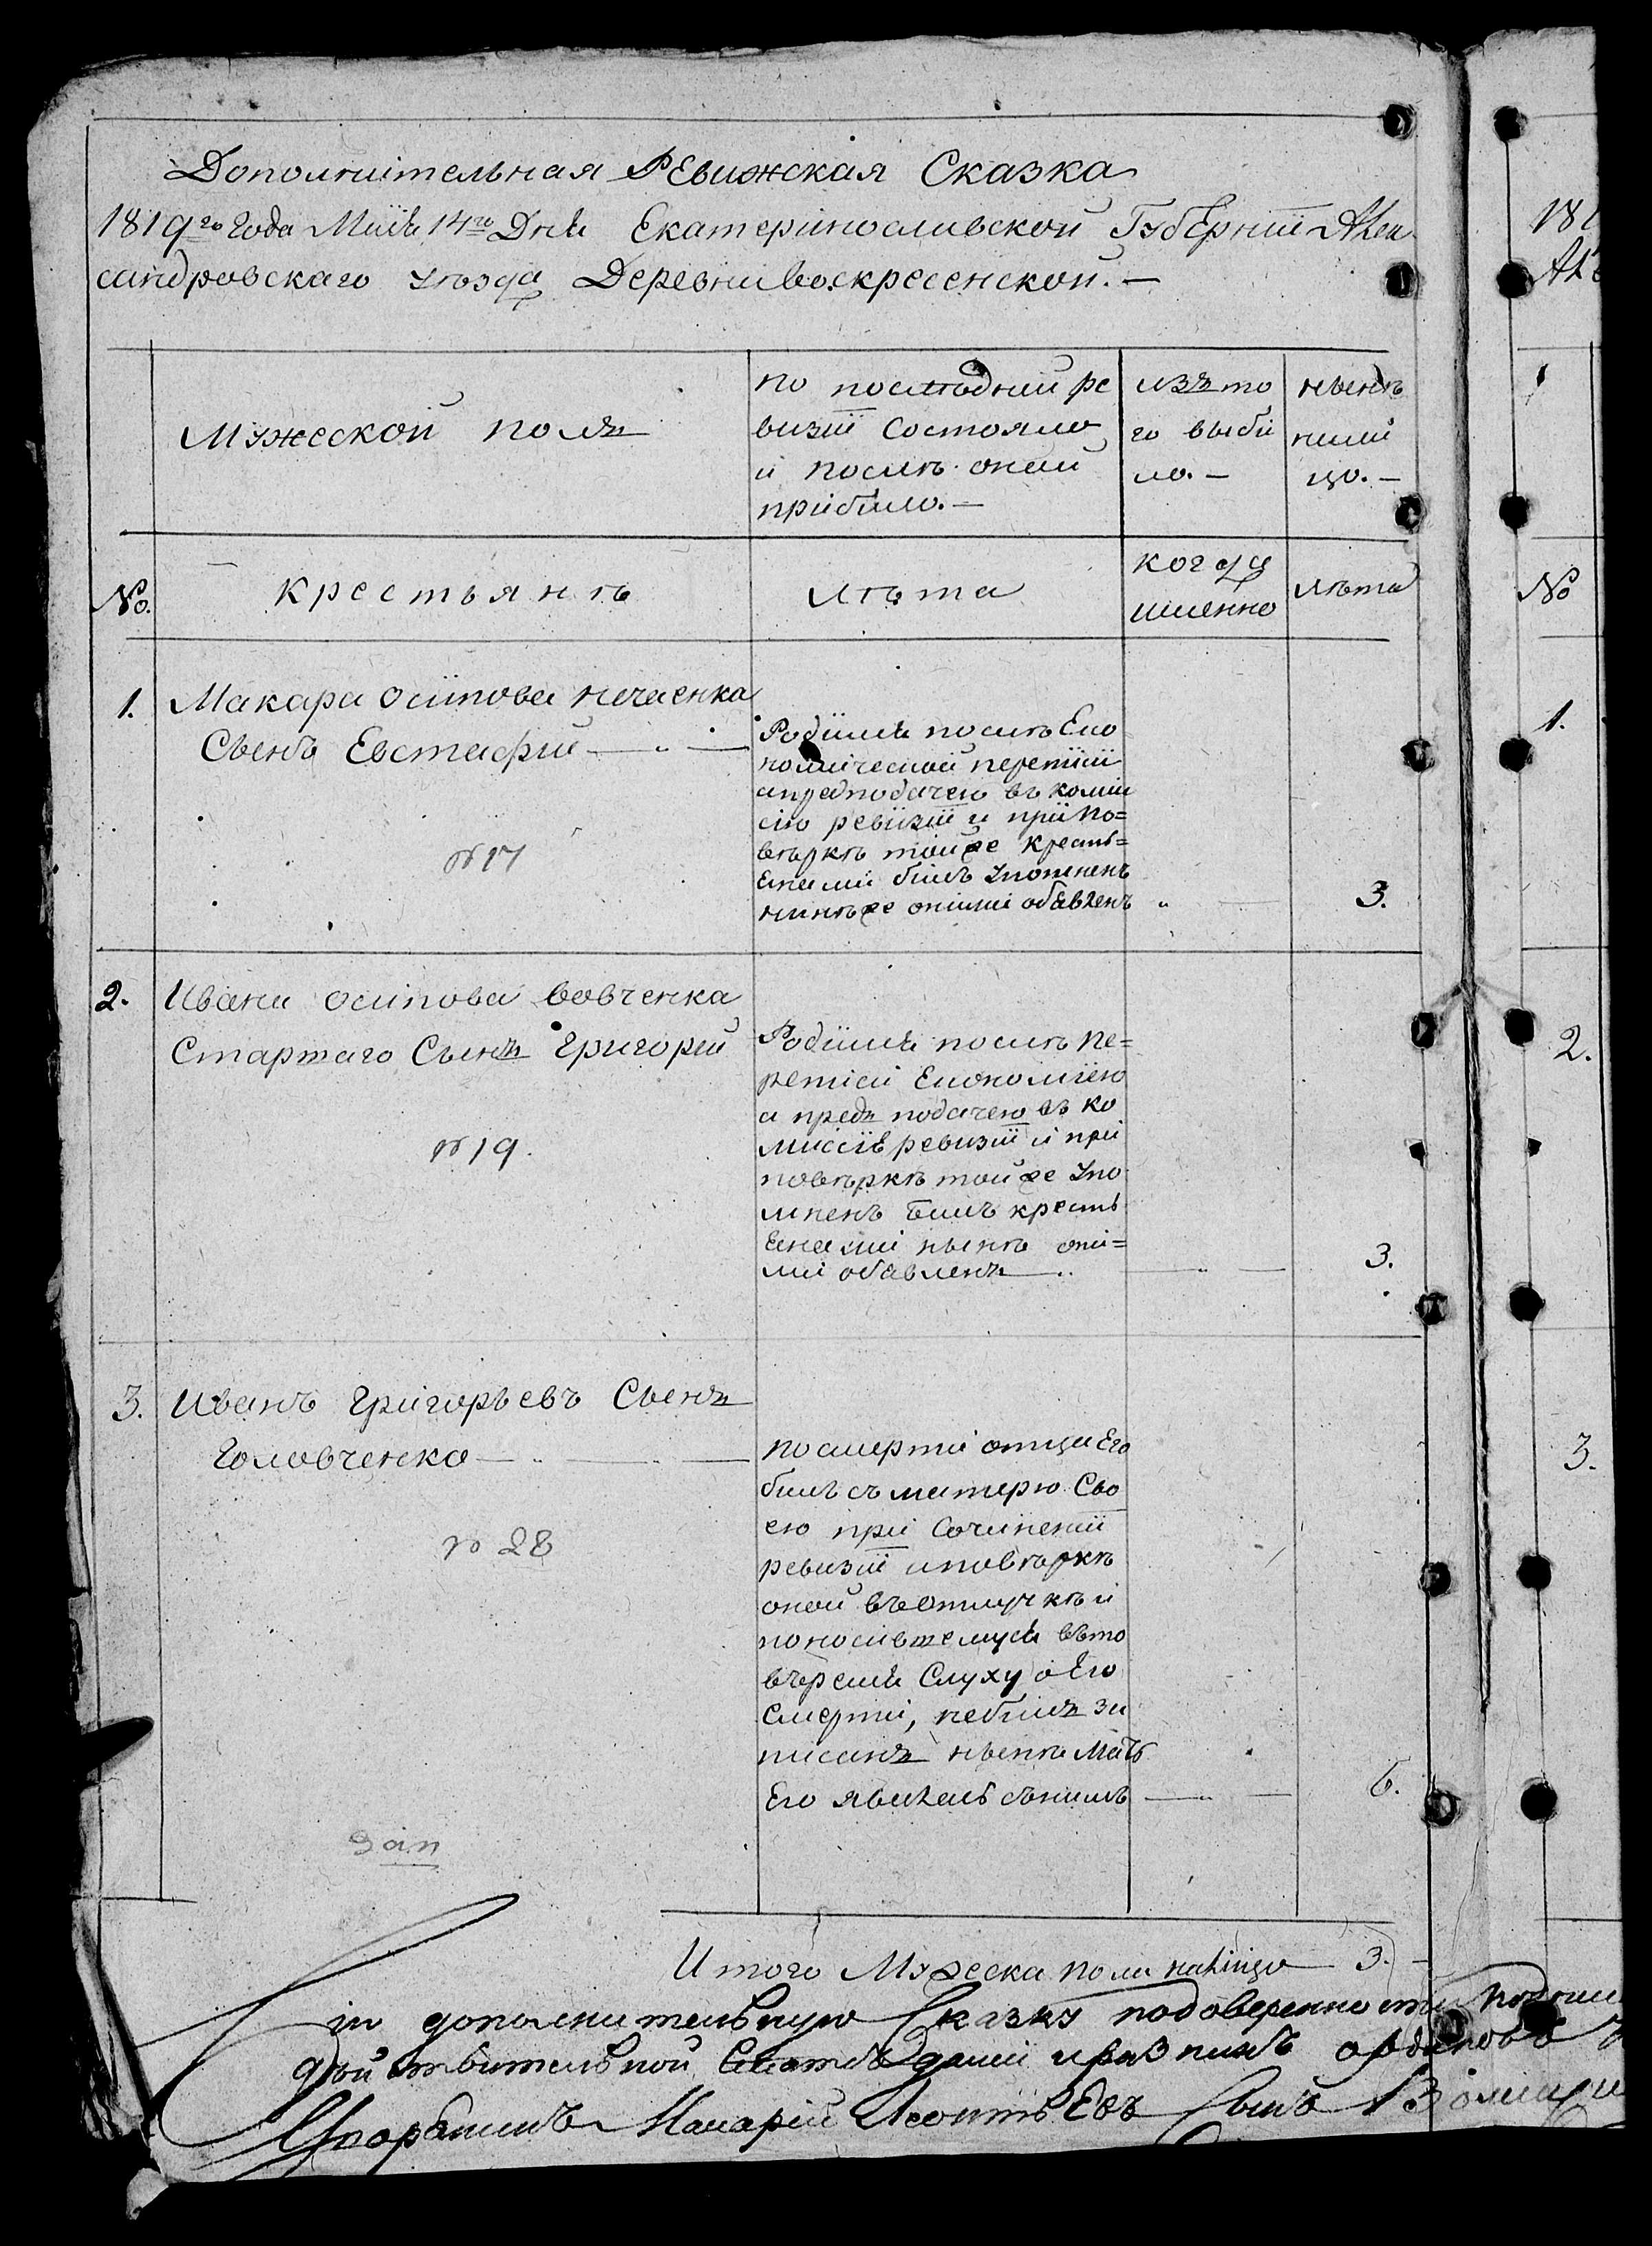 Дополнительная Ревижская Сказка
1819го года Маія 14го Дня Екатеринославской Губерніи Алек
сандровскаго уезда Деревни Воскресенской. —
Мужеской полъ
по последней ре
визіи состояло
и после оной
прибило. —
изъ то
го выби
ло. —
ныне
нали
цо. —
№
крестьяне
лета
когда
именно
лета
1.
Макара Осипова Нечаенка
Сынъ Евстафий
№ 17
Родился после Еко
номической
а пред подачею въ коми
сію ревизіи и при по=
верке тойже кресть=
Янами билъ
нинеже оними обявленъ
3.
2.
Ивана Осипова Вовченка
Старшаго Сынъ Григорей
№ 19.
Родился после пе=
Економіею
а предъ подачею въ ко
мисіе ревизіи и при
поверке тойже упо
мненъ билъ кресть
Янами ныне они=
ми обавленъ
3.
3.
Иванъ Григорьевъ Сынъ
Головченко
№ 28
По смерти отца Его
билъ съ матерю Сво
ею при Сочинении
ревизіи и поверке
оной въ отлучке и
по носившемуся въто
время Слуху о Его
Смерти, небилъ за
писанъ ныне Мать
Его явилась сънимъ
6.
Итого Мужеска пола налицо 3. —
дополнительную Сказку
действительной
Макарій Леонтьевъ Сынъ
181
Але
№
1.
2.
3.